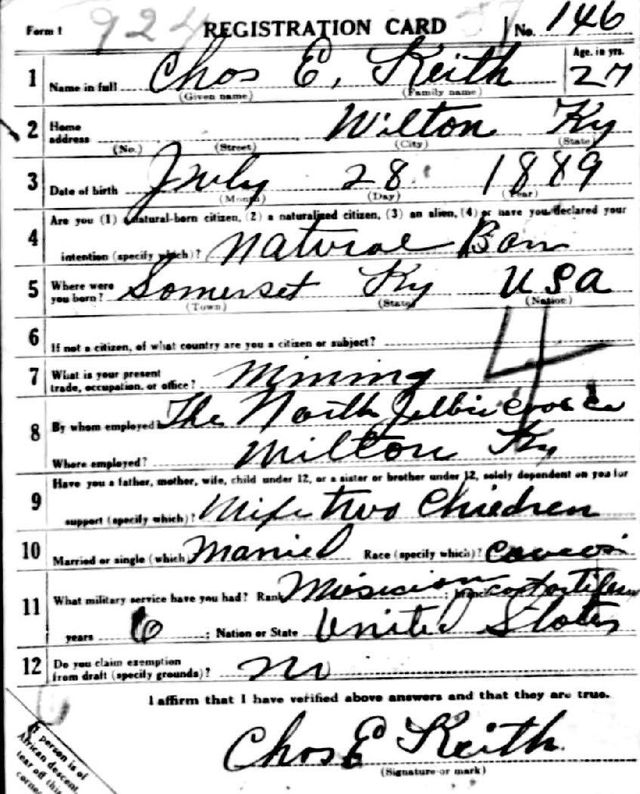 Form 1 924 REGISTRATION CARD No. 146
1 Name in full Chas E. Keith Age, in yrs. 27
(Given name) (Family name)
2 Home address Wilton Ky
(No.) (Street) (City) (State)
3 Date of birth July 28 1889
(Month) (Day) (Year)
4 Are you (1) a natural-born citizen, (2) a naturalized citizen, (3) an alien, (4) or have you declared your
intention (specify which)? Natural Born
5 Where were you born? Somerset Ky USA
(Town) (State) (Nation)
6 If not a citizen, of what country are you a citizen or subject?
7 What is your present trade, occupation, or office? Mining 4
8 By whom employed? The North Jellico Coal Co
Where employed? Wilton Ky
9 Have you a father, mother, wife, child under 12, or a sister or brother under 12, solely dependent on you for
support (specify which)? Wife two Children
10 Married or single (which)? Married Race (specify which)?
11 What military service have you had? Rank Musician ; branch
years 6 ; Nation or State United States
12 Do you claim exemption from draft (specify grounds)? no
I affirm that I have verified above answers and that they are true.
Chas E Keith
(Signature or mark)
If person is of
African descent,
tear off this
corner